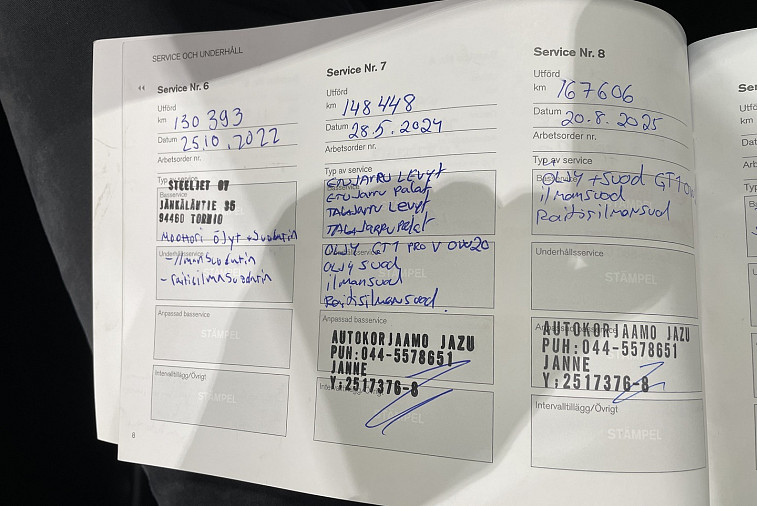 SERVICE OCH UNDERHÅLL
Service Nr. 6
Utförd
km 130 393
Datum 25.10.2022
Arbetsorder nr.
Typ av service
STEELJET OY
Basservice
JÄNKÄLÄNTIE 35
94460 TORNIO
Moottori öljyt + Suodatin
Underhållsservice
- ilmansuodatin
- raitisilmansuodatin
STÄMPEL
Anpassad basservice
STÄMPEL
Intervalltillägg/Övrigt
STÄMPEL
6
Service Nr. 7
Utförd
km 148 448
Datum 28.5.2024
Arbetsorder nr.
Typ av service
ETUJARRU LEVYT
ETUJarru Palat
TAKAJarru LEVYT
TAKAJARRU Palat
ÖLJY GT1 PRO V 0W20
ÖLJY SUOD
STÄMPEL
ilmansuod
Raitisilmansuod.
Anpassad basservice
AUTOKORJAAMO JAZU
PUH:044-5578651
JANNE
Y:2517376-8
STÄMPEL
Service Nr. 8
Utförd
km 167606
Datum 20.8.2025
Arbetsorder nr.
Typ av service
ÖLJY + SUOD GT1
ilmansuod
Raitisilmansuod
Underhållsservice
STÄMPEL
Anpassad basservice
AUTOKORJAAMO JAZU
PUH:044-5578651
JANNE
Y:2517376-8
Intervalltillägg/Övrigt
STÄMPEL